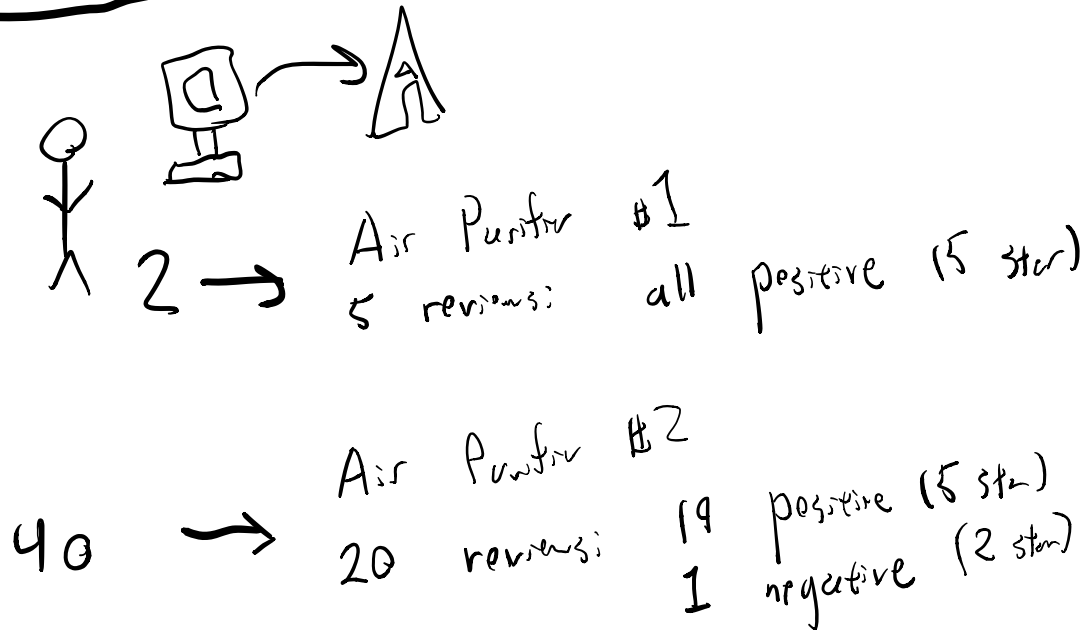 a
A
Air Purifier #1
2 → 5 reviews: all positive (5 star)
Air Purifier #2
40 → 20 reviews: 19 positive (5 star)
1 negative (2 star)